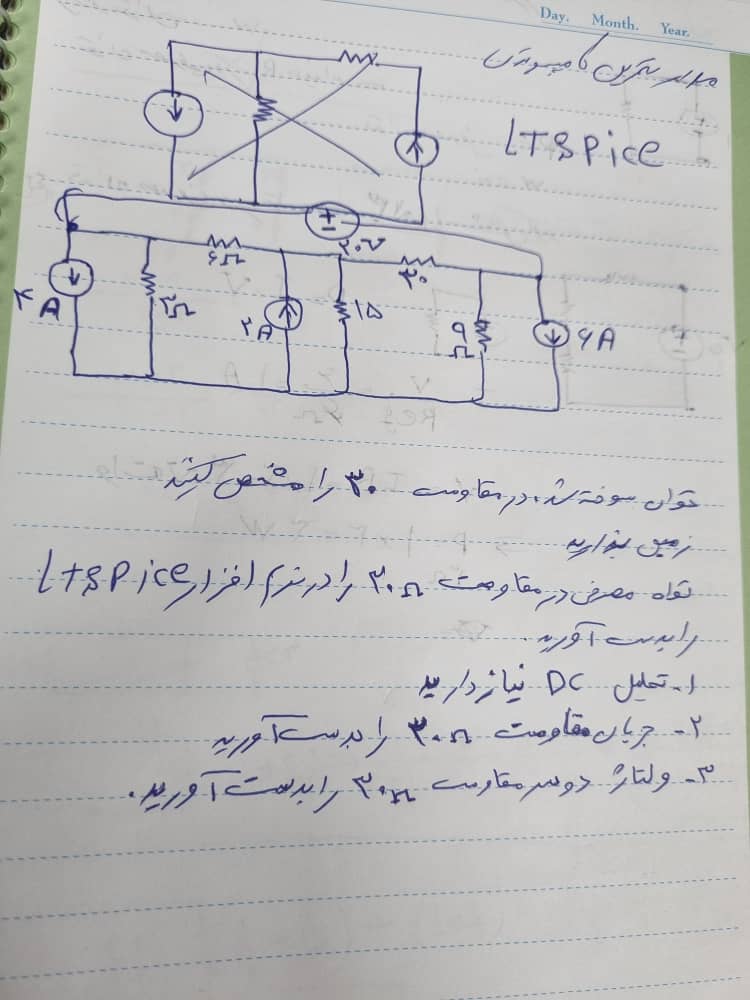 Day. Month. Year.
تمرین کامپیوتری
LTSpice
+
-
۲۰V
۶Ω
۳۰
۳A
۳Ω
۲A
۱۵
۹
Ω
۶A
توان سوخته شده در مقاومت ۳۰ را مشخص کنید
زمین بذارید
توان مصرفی در مقاومت ۳۰Ω را در نرم افزار LTSPice
را بدست آورید.
۱- تحلیل DC نیاز دارید
۲- جریان مقاومت ۳۰Ω را بدست آورید
۳- ولتاژ دو سر مقاومت ۳۰Ω را بدست آورید.